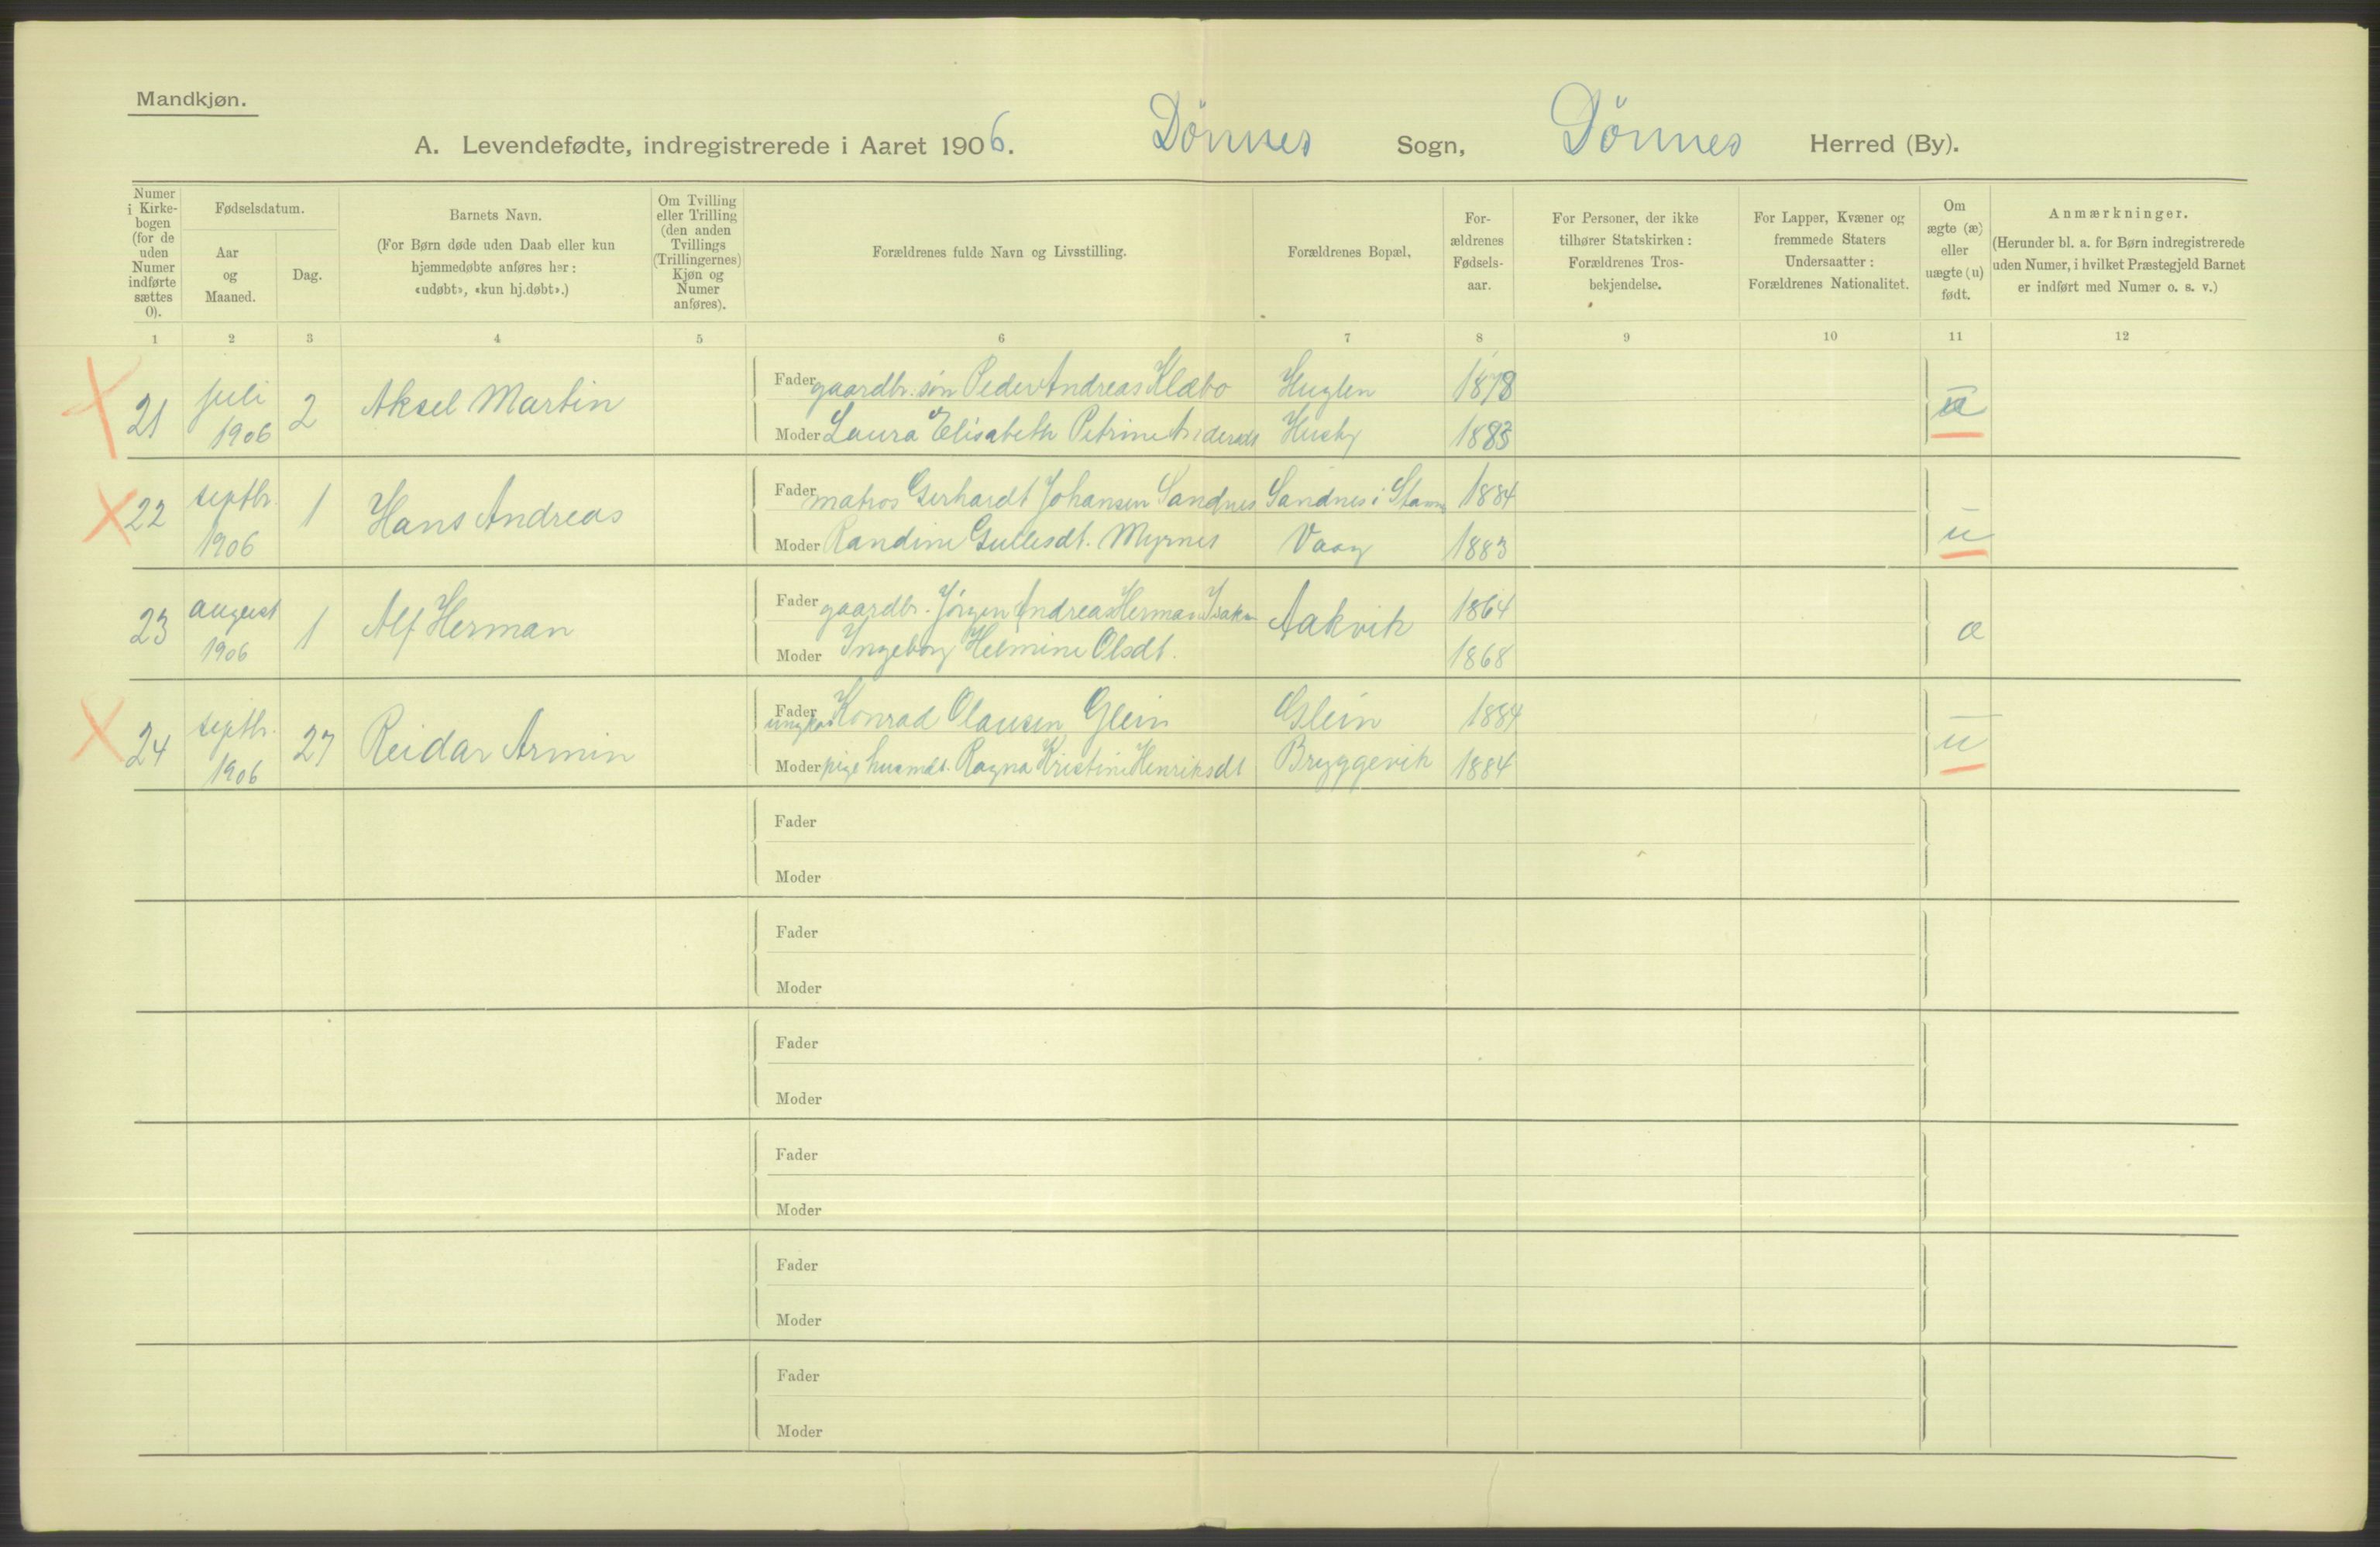 Mandkjøn.
A. Levendefødte, indregistrerede i Aaret 1906. Dönnes Sogn, Dönnes Herred (By).
Numer i Kirkebogen (for de uden Numer indførte sættes 0).
Fødselsdatum.
Aar og Maaned.
Dag.
Barnets Navn.
(For Børn døde uden Daab eller kun hjemmedøbte anføres her: «udøbt», «kun hj.døbt».)
Om Tvilling eller Trilling (den anden Tvillings (Trillingernes) Kjøn og Numer anføres).
Forældrenes fulde Navn og Livsstilling.
Forældrenes Bopæl,
Forældrenes Fødselsaar.
For Personer, der ikke tilhører Statskirken: Forældrenes Trosbekjendelse.
For Lapper, Kvæner og fremmede Staters Undersaatter: Forældrenes Nationalitet.
Om ægte (æ) eller uægte (u) født.
Anmærkninger.
(Herunder bl. a. for Børn indregistrerede uden Numer, i hvilket Præstegjeld Barnet er indført med Numer o. s. v.)
1 2 3 4 5 6 7 8 9 10 11 12
21 juli 1906 2 Aksel Martin
Fader gaardbr. søn Peder Andreas Klæbo Huglen 1878
Moder Laura Elisabeth Petrine Husby 1883
22 septbr. 1906 1 Hans Andreas u
Fader matros Gerhardt Johansen Sandnes Sandnes i 1884
Moder Randine Gullesdt. Myrnes Vaag 1883
23 august 1906 1 Alf Herman æ
Fader gaardbr. Jörgen Andreas Herman Isaksen Aakvik 1864
Moder Ingeborg Helmine Olsdt. 1868
24 septbr. 1906 27 Reidar Armin u
Fader ungkar Konrad Olausen Glein Glein 1884
Moder pige husmdt. Ragna Kristine Henriksdt Bryggevik 1884
Fader
Moder
Fader
Moder
Fader
Moder
Fader
Moder
Fader
Moder
Fader
Moder